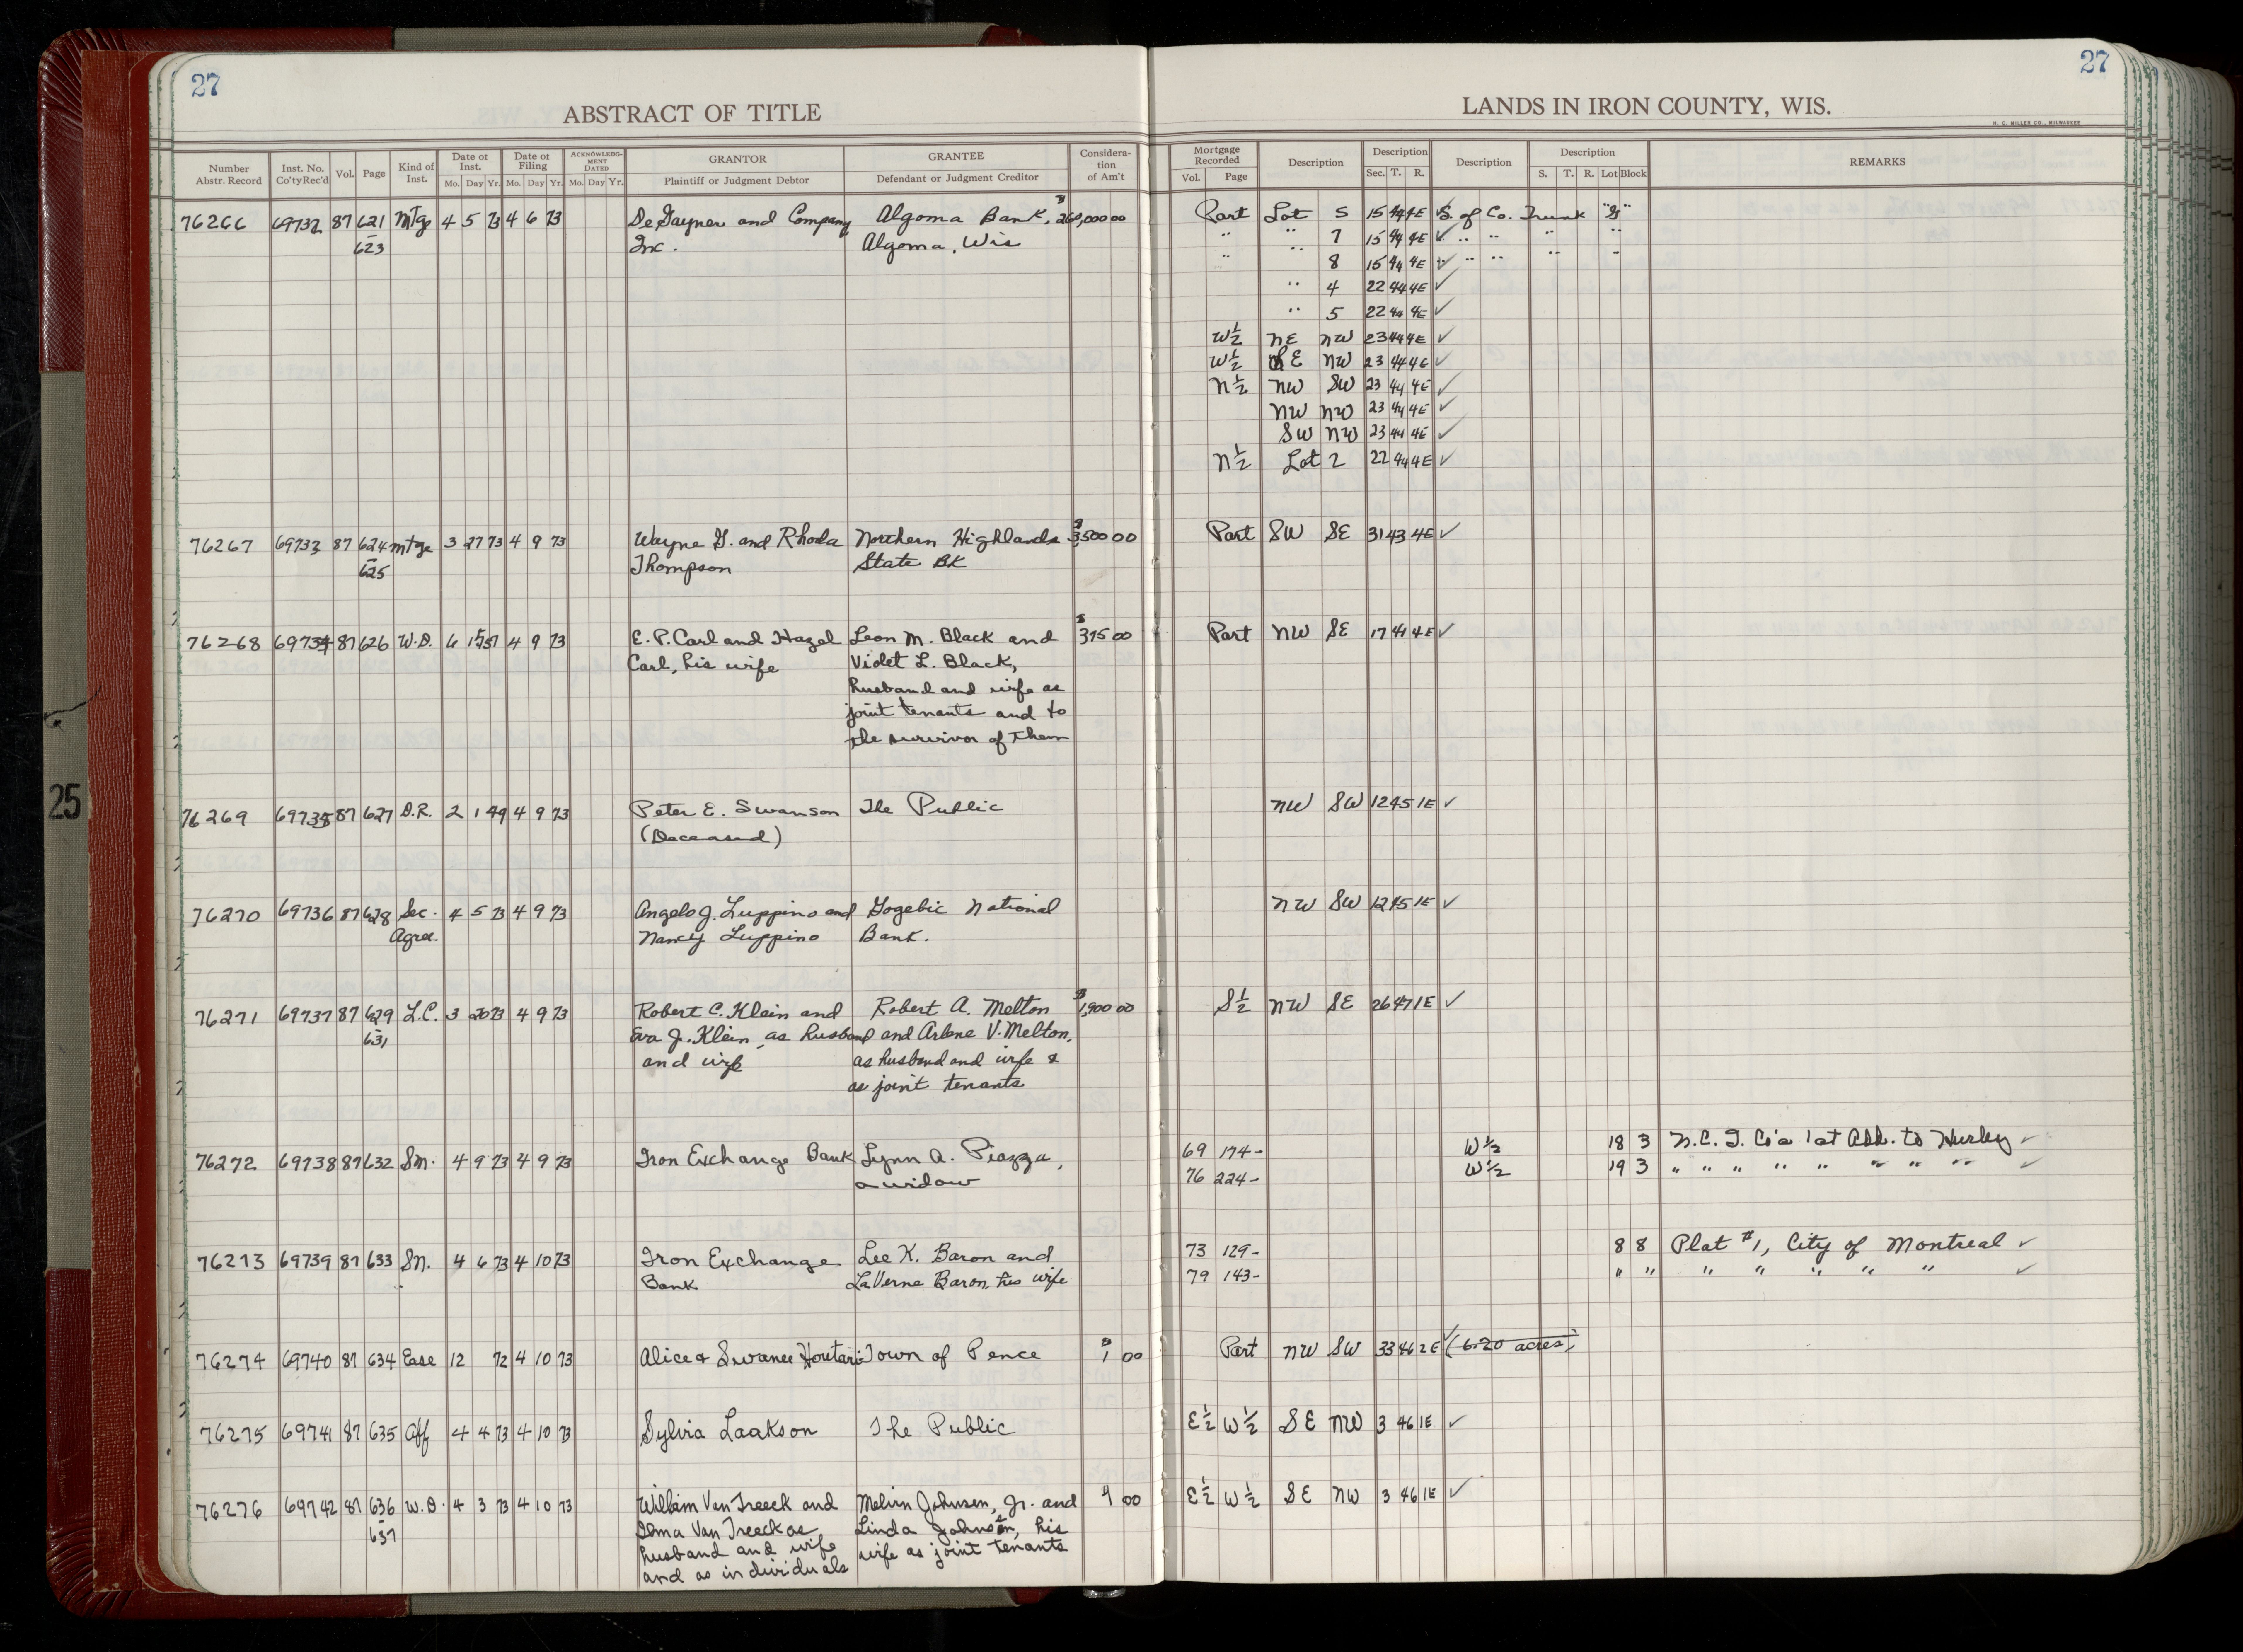 27
27
ABSTRACT OF TITLE
LANDS IN IRON COUNTY, WIS.
H. C. MILLER CO., MILWAUKEE
Number Abstr. Record Inst. No. Co'ty Rec'd Vol. Page Kind of Inst. Date of Inst. Mo. Day Yr. Date of Filing Mo. Day Yr. ACKNOWLEDGMENT DATED Mo. Day Yr. GRANTOR Plaintiff or Judgment Debtor GRANTEE Defendant or Judgment Creditor Consideration of Am't Mortgage Recorded Vol. Page Description Description Sec. T. R. Description Description S. T. R. Lot Block REMARKS
76266 69732 87 621 Mtge 4 5 73 4 6 73 DeGayner and Company Algoma Bank, $ 260,000 00 Part Lot 5 15 44 4E ✓ S. of Co. Trunk "G"
623 Inc. Algoma, Wis " " 7 15 44 4E ✓ " " " "
" " 8 15 44 4E ✓ " " " "
" 4 22 44 4E ✓
" 5 22 44 4E ✓
W½ NE NW 23 44 4E ✓
W½ SE NW 23 44 4E ✓
N½ NW SW 23 44 4E ✓
NW NW 23 44 4E ✓
SW NW 23 44 4E ✓
N½ Lot 2 22 44 4E ✓
76267 69733 87 624 mtge 3 27 73 4 9 73 Wayne G. and Rhoda Northern Highlands $ 3500 00 Part SW SE 31 43 4E ✓
625 Thompson State BK
76268 69734 87 626 W.D. 6 15 57 4 9 73 E. P. Carl and Hazel Leon M. Black and $ 375 00 Part NW SE 17 41 4E ✓
Carl, his wife Violet L. Black,
husband and wife as
joint tenants and to
the survivor of them
25
76269 69735 87 627 D.R. 2 1 49 4 9 73 Peter E. Swanson The Public NW SW 12 45 1E ✓
(Deceased)
76270 69736 87 628 Sec. 4 5 73 4 9 73 Angelo J. Luppino and Gogebic National NW SW 12 45 1E ✓
Agree. Nancy Luppino Bank.
76271 69737 87 629 L.C. 3 20 73 4 9 73 Robert C. Klein and Robert A. Melton $ 1,900 00 S½ NW SE 26 47 1E ✓
631 Eva J. Klein, as husband and Arlene V. Melton,
and wife as husband and wife &
as joint tenants
76272 69738 87 632 Sn. 4 9 73 4 9 73 Iron Exchange Bank Lynn A. Piazza, 69 174- W½ 18 3 N.C.I. Co's 1st Add. to Hurley ✓
a widow 76 224- W½ 19 3 " " " " " " " " ✓
76273 69739 87 633 Sn. 4 6 73 4 10 73 Iron Exchange Lee K. Baron and 73 129- 8 8 Plat #1, City of Montreal ✓
Bank LaVerne Baron, his wife 79 143- " " " " " " " ✓
76274 69740 87 634 Ease 12 72 4 10 73 Alice & Swanee Houtari Town of Pence $ 1 00 Part NW SW 33 46 2E ✓ (6.20 acres)
76275 69741 87 635 Aff 4 4 73 4 10 73 Sylvia Laakson The Public E½ W½ SE NW 3 46 1E ✓
76276 69742 87 636 W.D. 4 3 73 4 10 73 William Van Treeck and Melvin Johnsen, Jr. and 9 00 E½ W½ SE NW 3 46 1E ✓
637 Van Treeck as Linda Johnsen, his
husband and wife wife as joint tenants
and as individuals